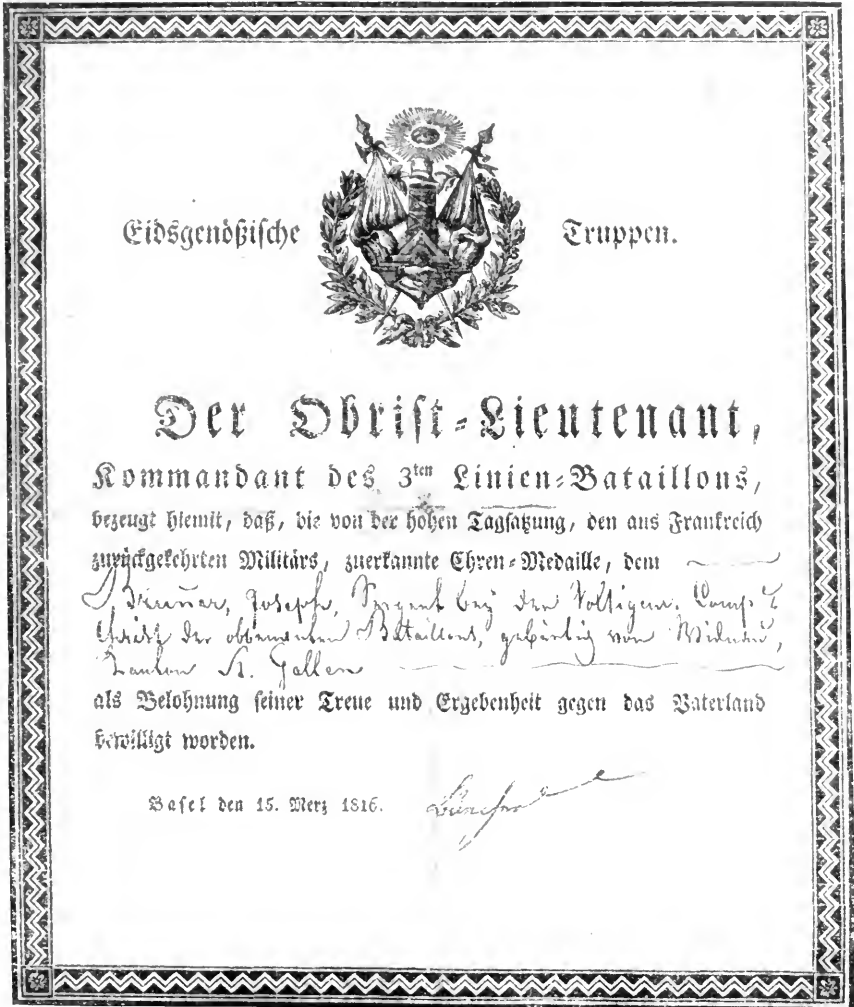 Eidsgenößische Truppen.
Der Obrist-Lieutenant,
Kommandant des 3ten Linien-Bataillons,
bezeugt hiemit, daß, die von der hohen Tagsatzung, den aus Frankreich
zurückgekehrten Militärs, zuerkannte Ehren-Medaille, dem
Joseph, Sergent bey der Voltigeur. Comp.
der obbenannten Bataillons, gebürtig von Widnau,
Kanton St. Gallen
als Belohnung seiner Treue und Ergebenheit gegen das Vaterland
bewilligt worden.
Basel den 15. Merz 1816.